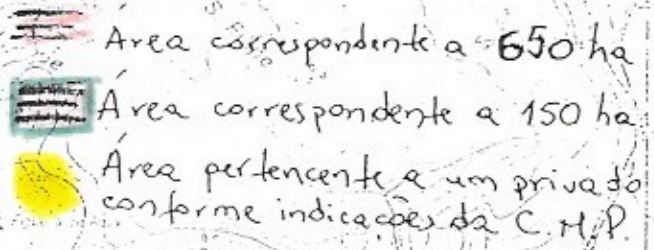 Área correspondente a 650 ha
Área correspondente a 150 ha
Área pertencente a um privado
conforme indicações da C.M.P.